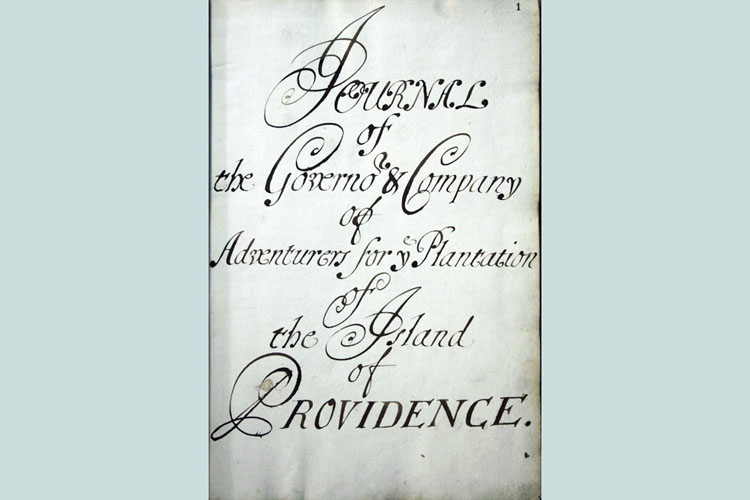 1
A
JOURNAL
of
the Governoʳ & Company
of
Adventurers for yᵉ Plantation
of
the Island
of
PROVIDENCE.